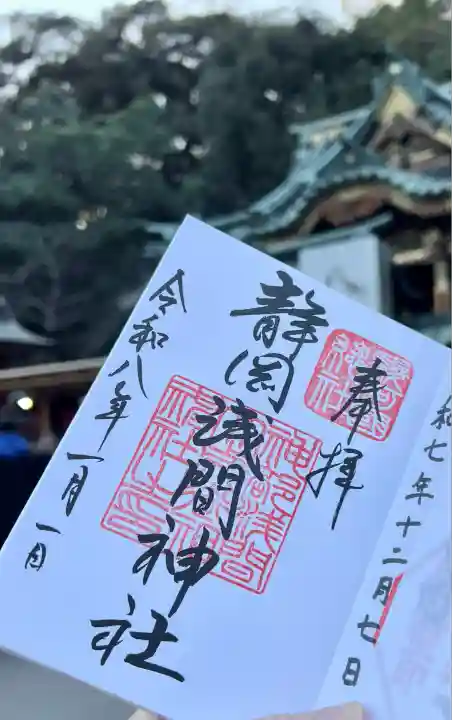 奉拝
静岡浅間神社
令和八年一月一日
和七年十二月七日